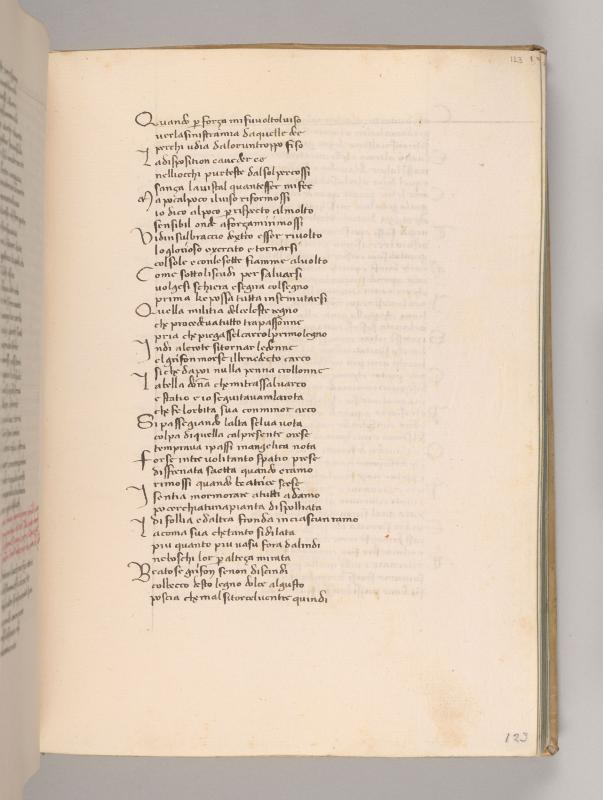 123
Quando p forza mi fu volto luiso
verla sinistra mia daquelle dee
perchi udia dalor untroppo fiso
La disposition cauederee
nelliocchi pur teste dalsol percossi
sanza lauista lquantesser mi fee
Ma po calpoco iluiso riformossi
io dico alpoco p rispecto almolto
sensibil onde aforza mi mossi
Vidinsulbraccio dextro esser riuolto
loglorioso exercito e tornarsi
colsole e conlesette fiamme aluolto
Come sottoliscudi per saluarsi
volgesi schiera e segira colsegno
prima ke possa tutta insemutarsi
Quella militia delceleste regno
che procedeua tutto trapassonne
pria che piegassel carrol primo legno
Indi alerote sitornar ledonne
elgrifon mosse illbenedecto carco
si che dapoi nulla penna crollonne
La bella donna che mi trassaluarco
e statio e io seguitauam larota
che fe lorbita sua conminor arco
Si passegiando lalta selua vota
colpa diquella calpresente crese
temprava ipassi inangelica nota
Forse intre voli tanto spatio prese
disfrenata saetta quando eramo
rimossi quando beatrice scese
Io sentia mormorare atutti adamo
po cerchiar una pianta dispolliata
di follia e daltra fronda inciascun ramo
La coma sua che tanto sidilata
piu quanto piu va su fora dalindi
neboschi lor p alteza mirata
Beato se grifon senon discindi
colbecco desto legno dolce algusto
poscia che mal sitorcel uentre quindi
123